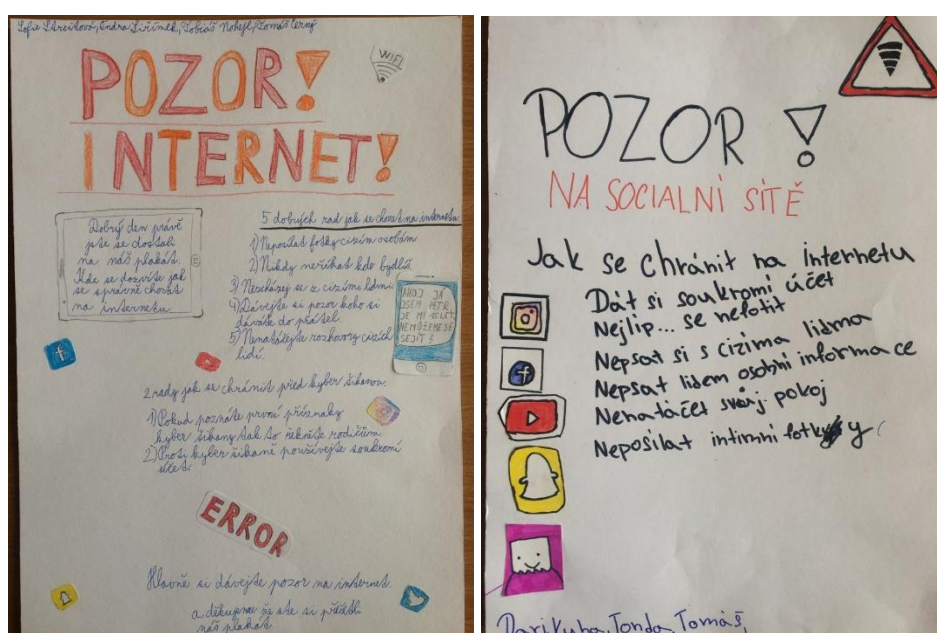 Sofie Streitová, Ondra Jiřímek, Tobiáš Nohejl, Tomáš Černý
WIFI
POZOR!
INTERNET!
Dobrý den právě
jste se dostali
na náš plakát.
Kde se dozvíte jak
se správně chovat
na internetu
5 dobrých rad jak se chovat na internetu
1) Neposílat fotky cizím osobám
2) Nikdy neříkat kde bydlíš.
3) Nescházej se z cizími lidmi
4) Dávejte si pozor koho si
dáváte do přátel.
5) Nenatáčejte rozhovory cizích
lidí.
AHOJ JÁ
JSEM PETR
JE MI 15 LET
NEMŮŽEME SE
SEJÍT?
2 rady jak se chránit před kyber šikanou.
1) Pokud poznáte první příznaky
kyber šikany tak to řekněte rodičům
2) Proti kyber šikaně používejte soukromí
účet.
ERROR
Hlavně si dávejte pozor na internet
a děkujeme že ste si přečetli
náš plakát
POZOR!
NA SOCIALNI SÍTĚ
Jak se chránit na internetu
Dát si soukromi účet
Nejlip... se nefotit
Nepsat si s cizima lidma
Nepsat lidem osobni informace
Nenatáčet svůj pokoj
Neposilat intimni fotky
Kuba, Tonda, Tomáš,